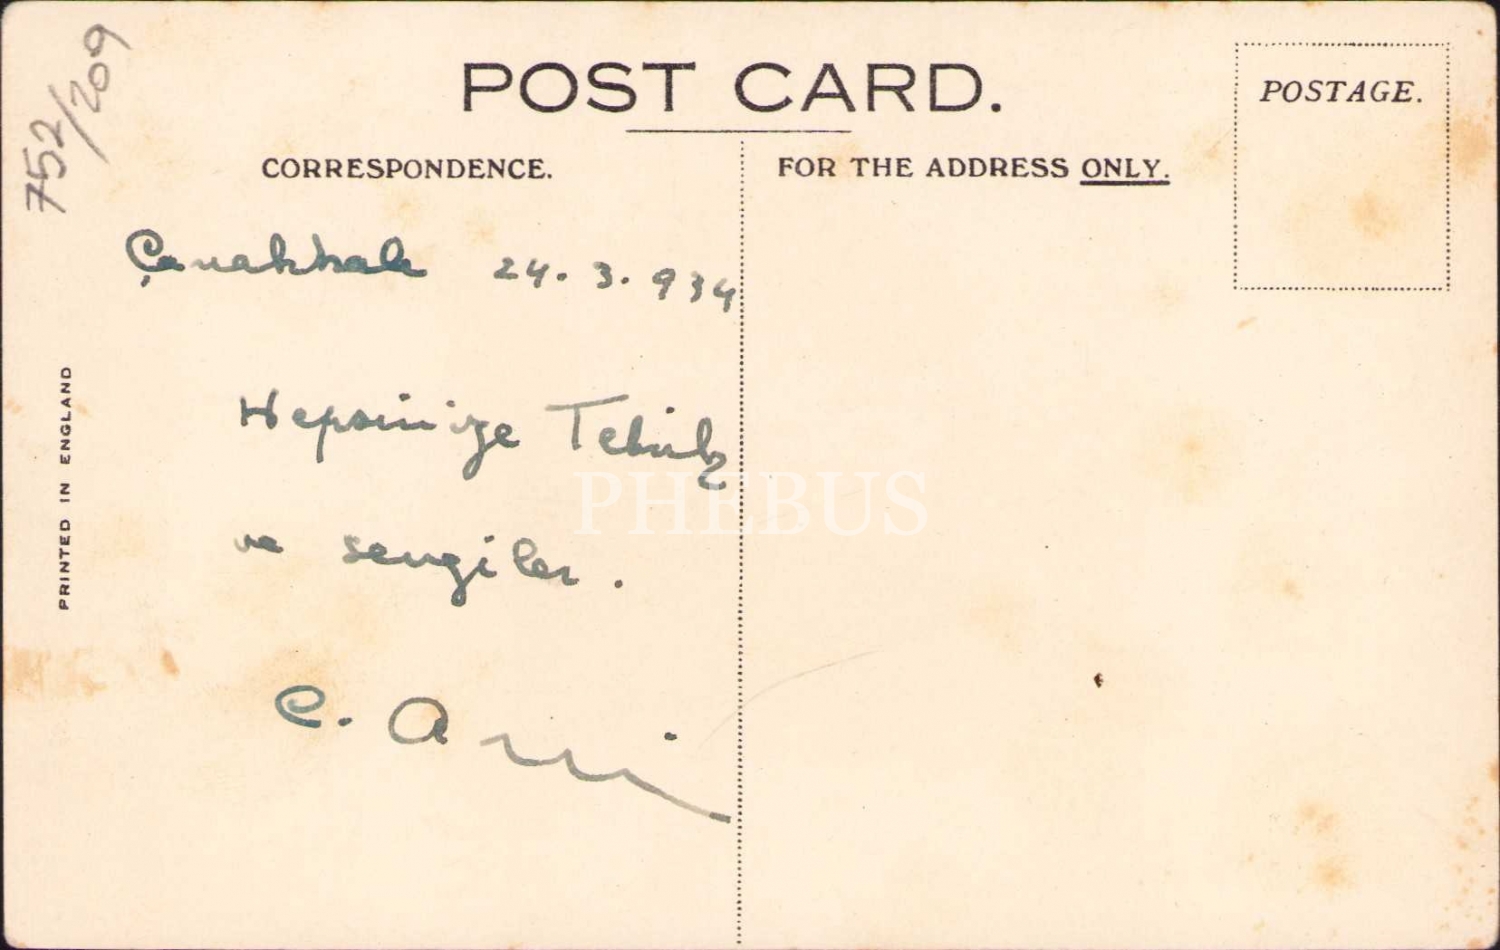 752/209
POST CARD.
POSTAGE.
CORRESPONDENCE.
FOR THE ADDRESS ONLY.
Çanakkale 24.3.934
Hepsinize Tebrik
ve sevgiler.
C.
PRINTED IN ENGLAND
PHEBUS